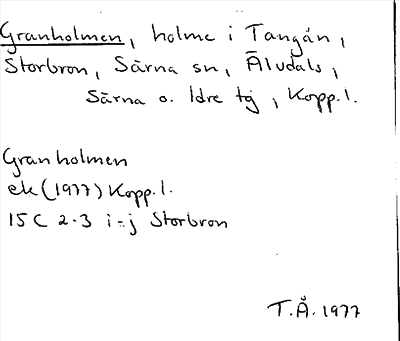 Granholmen, holme i Tangån,
Storbron, Särna sn, Älvdals,
Särna o. Idre tg, Kopp. l.
Granholmen
ek (1977) Kopp. l.
15 C 2-3 i-j Storbron
T.Å. 1977